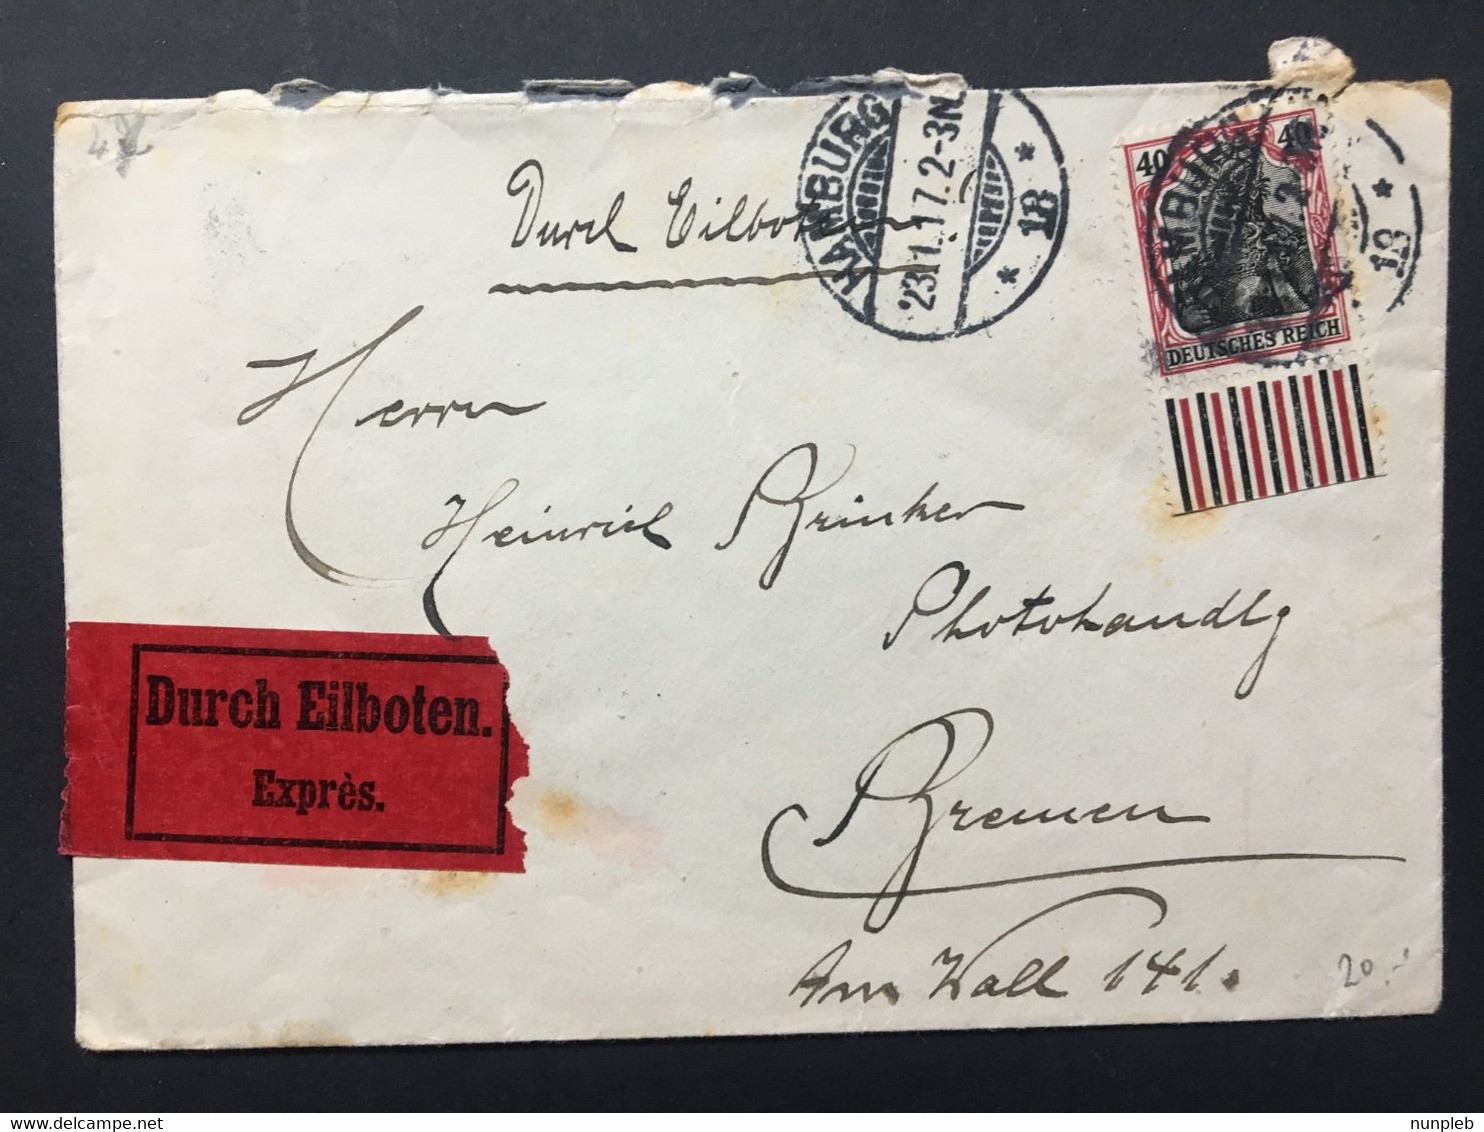 42
Durch Eilboten
HAMBURG
23.11.17.2-3N.
* 1B *
40 40
DEUTSCHES REICH
HAMBURG
* 1B
Herrn
Heinrich Brinker
Photohandlg
Bremen
Am Wall 141.
Durch Eilboten.
Exprès.
20.-
nunpleb